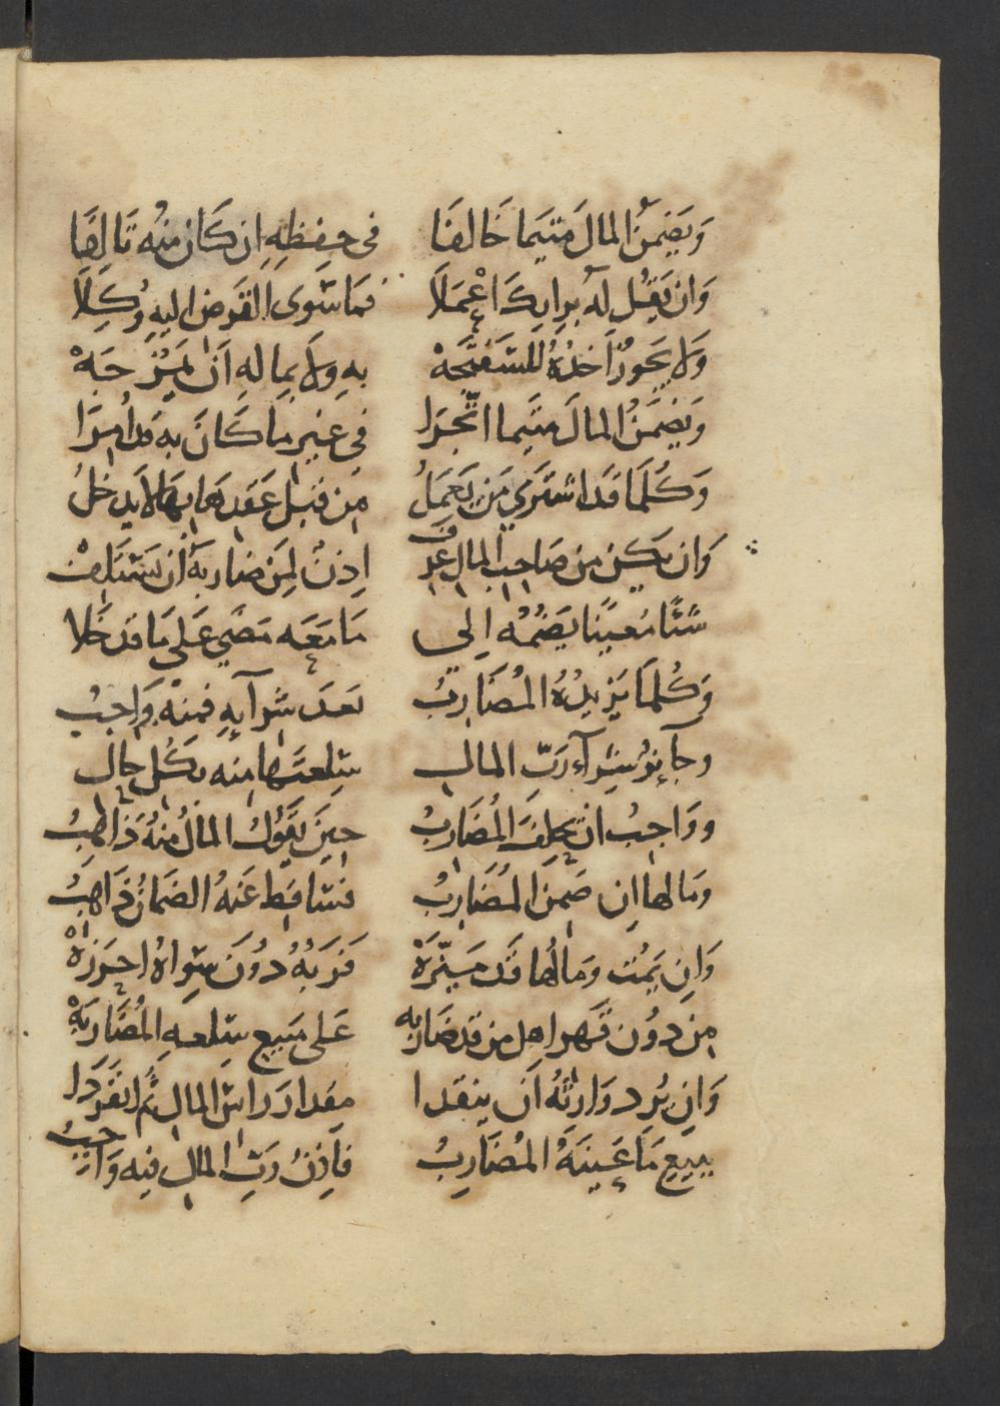 وَيَضمَنُ المالَ مَتَيمَا خَالفَا في حِفظِهِ اِن كَانَ مِنهُ تَالِفَا
وَان يَقُل لهُ برايِكَ اعْمَلَا فمَا سَوى القَرض اليهِ وُكِلَا
وَلا يَجوزُ اَخذُهُ للسَفتَجهْ بهِ ولا بمالهِ اَن يَمْزجَهْ
وَيَضمَنُ المالَ متَيما اتّجرَا في غيرِ مَا كَانَ بهِ قد اُمِرَا
وَكُلمَا قد اشتَرَى مَن يَعمَلُ مِن قَبلِ عَقدٍ بها لا يَدخلُ
وَان يَكن من صَاحبِ المالِ عُرِفْ اِذنٌ لِمَن ضاربهُ اَن يَستَلِفْ
شَئًا مُعينًا يَضُمُه اِلى مَا مَعَه مَضَى عَلى مَا قد خَلا
وَكُلمَا يَزيدُهُ المُضَاربُ بَعدَ شرآيهِ فمنهُ وَاجبُ
وجآيزٌ شرآء رَبّ المالِ سِلعتَها منه بكُل حالِ
ووَاجبٌ ان يَحلفَ المُضَاربُ حِينَ يَقولُ المالُ مِنهُ ذَاهِبُ
وَمالها اِن ضَمِنَ المُضَاربُ فسَاقط عَنهُ الضَمانُ ذَاهبُ
وَاِن يَمُت وَمالُها قَد مَيّزَهْ فَرَبُهُ دُونَ سِواهُ احرَزهْ
مِن دوُن قَهر اهل من قد ضَاربه عَلى مَبيعِ سِلعهِ المُضَاربَهْ
وَاِن يُرد وَارثهُ اَن ينقدا مِقدارَ راسِ المالِ ثُم انفَرَدَا
ببيعِ مَا عَينَهُ المُضَاربُ فاِذنُ رَبِ المالِ فيه وَاجبُ